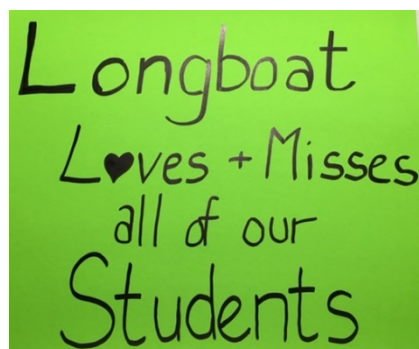 Longboat
L♥ves + Misses
all of our
Students